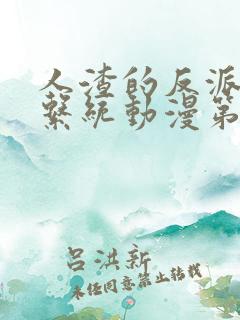 人渣的反派
繫統動漫第
呂洪新
未经同意禁止转载